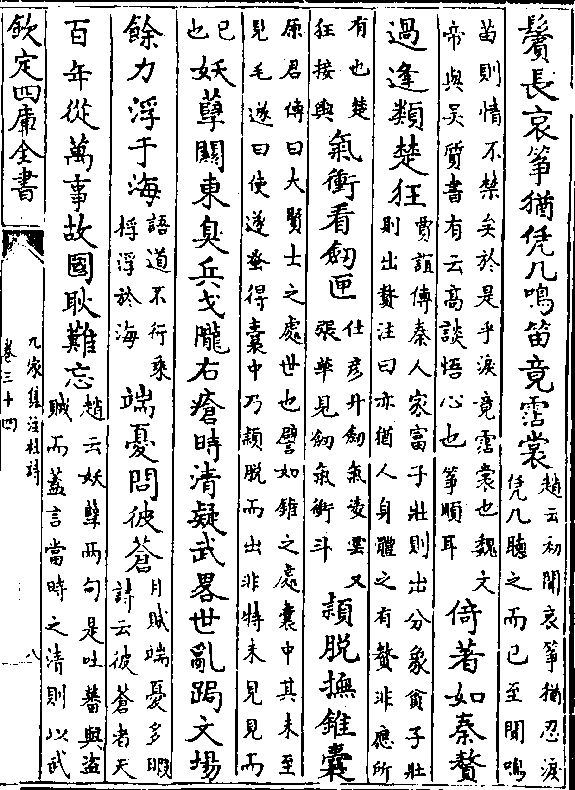 鬢長哀箏猶凭几鳴笛竟霑裳趙云初聞哀箏猶忍淚凭几聽之而已至聞鳴
笛則情不禁矣於是乎淚竟霑裳也魏文帝與吴質書有云高談悟心也箏順耳倚著如秦贅
過逢類楚狂賈誼傳秦人家富子壯則出分象貧子壯則出贅注曰亦猶人身體之有贅非應所
有也楚狂接輿氣衝看劒匣仕彦升劒氣凌雲又張華見劒氣衝斗頴脫撫錐囊
原君傳曰大賢士之處世也譬如錐之處囊中其未至見毛遂曰使遂蚤得囊中乃頴脫而出非特未見見而
已也妖孽關東臭兵戈隴右瘡時清疑武畧世亂跼文場
餘力浮于海語道不行乘桴浮於海端憂問彼蒼月賦端憂多暇詩云彼蒼者天
百年從萬事故國耻難忘趙云妖孽兩句是吐蕃與盜賊而蓋言當時之清則以武
欽定四庫全書
九家集注杜詩
卷三十四
八